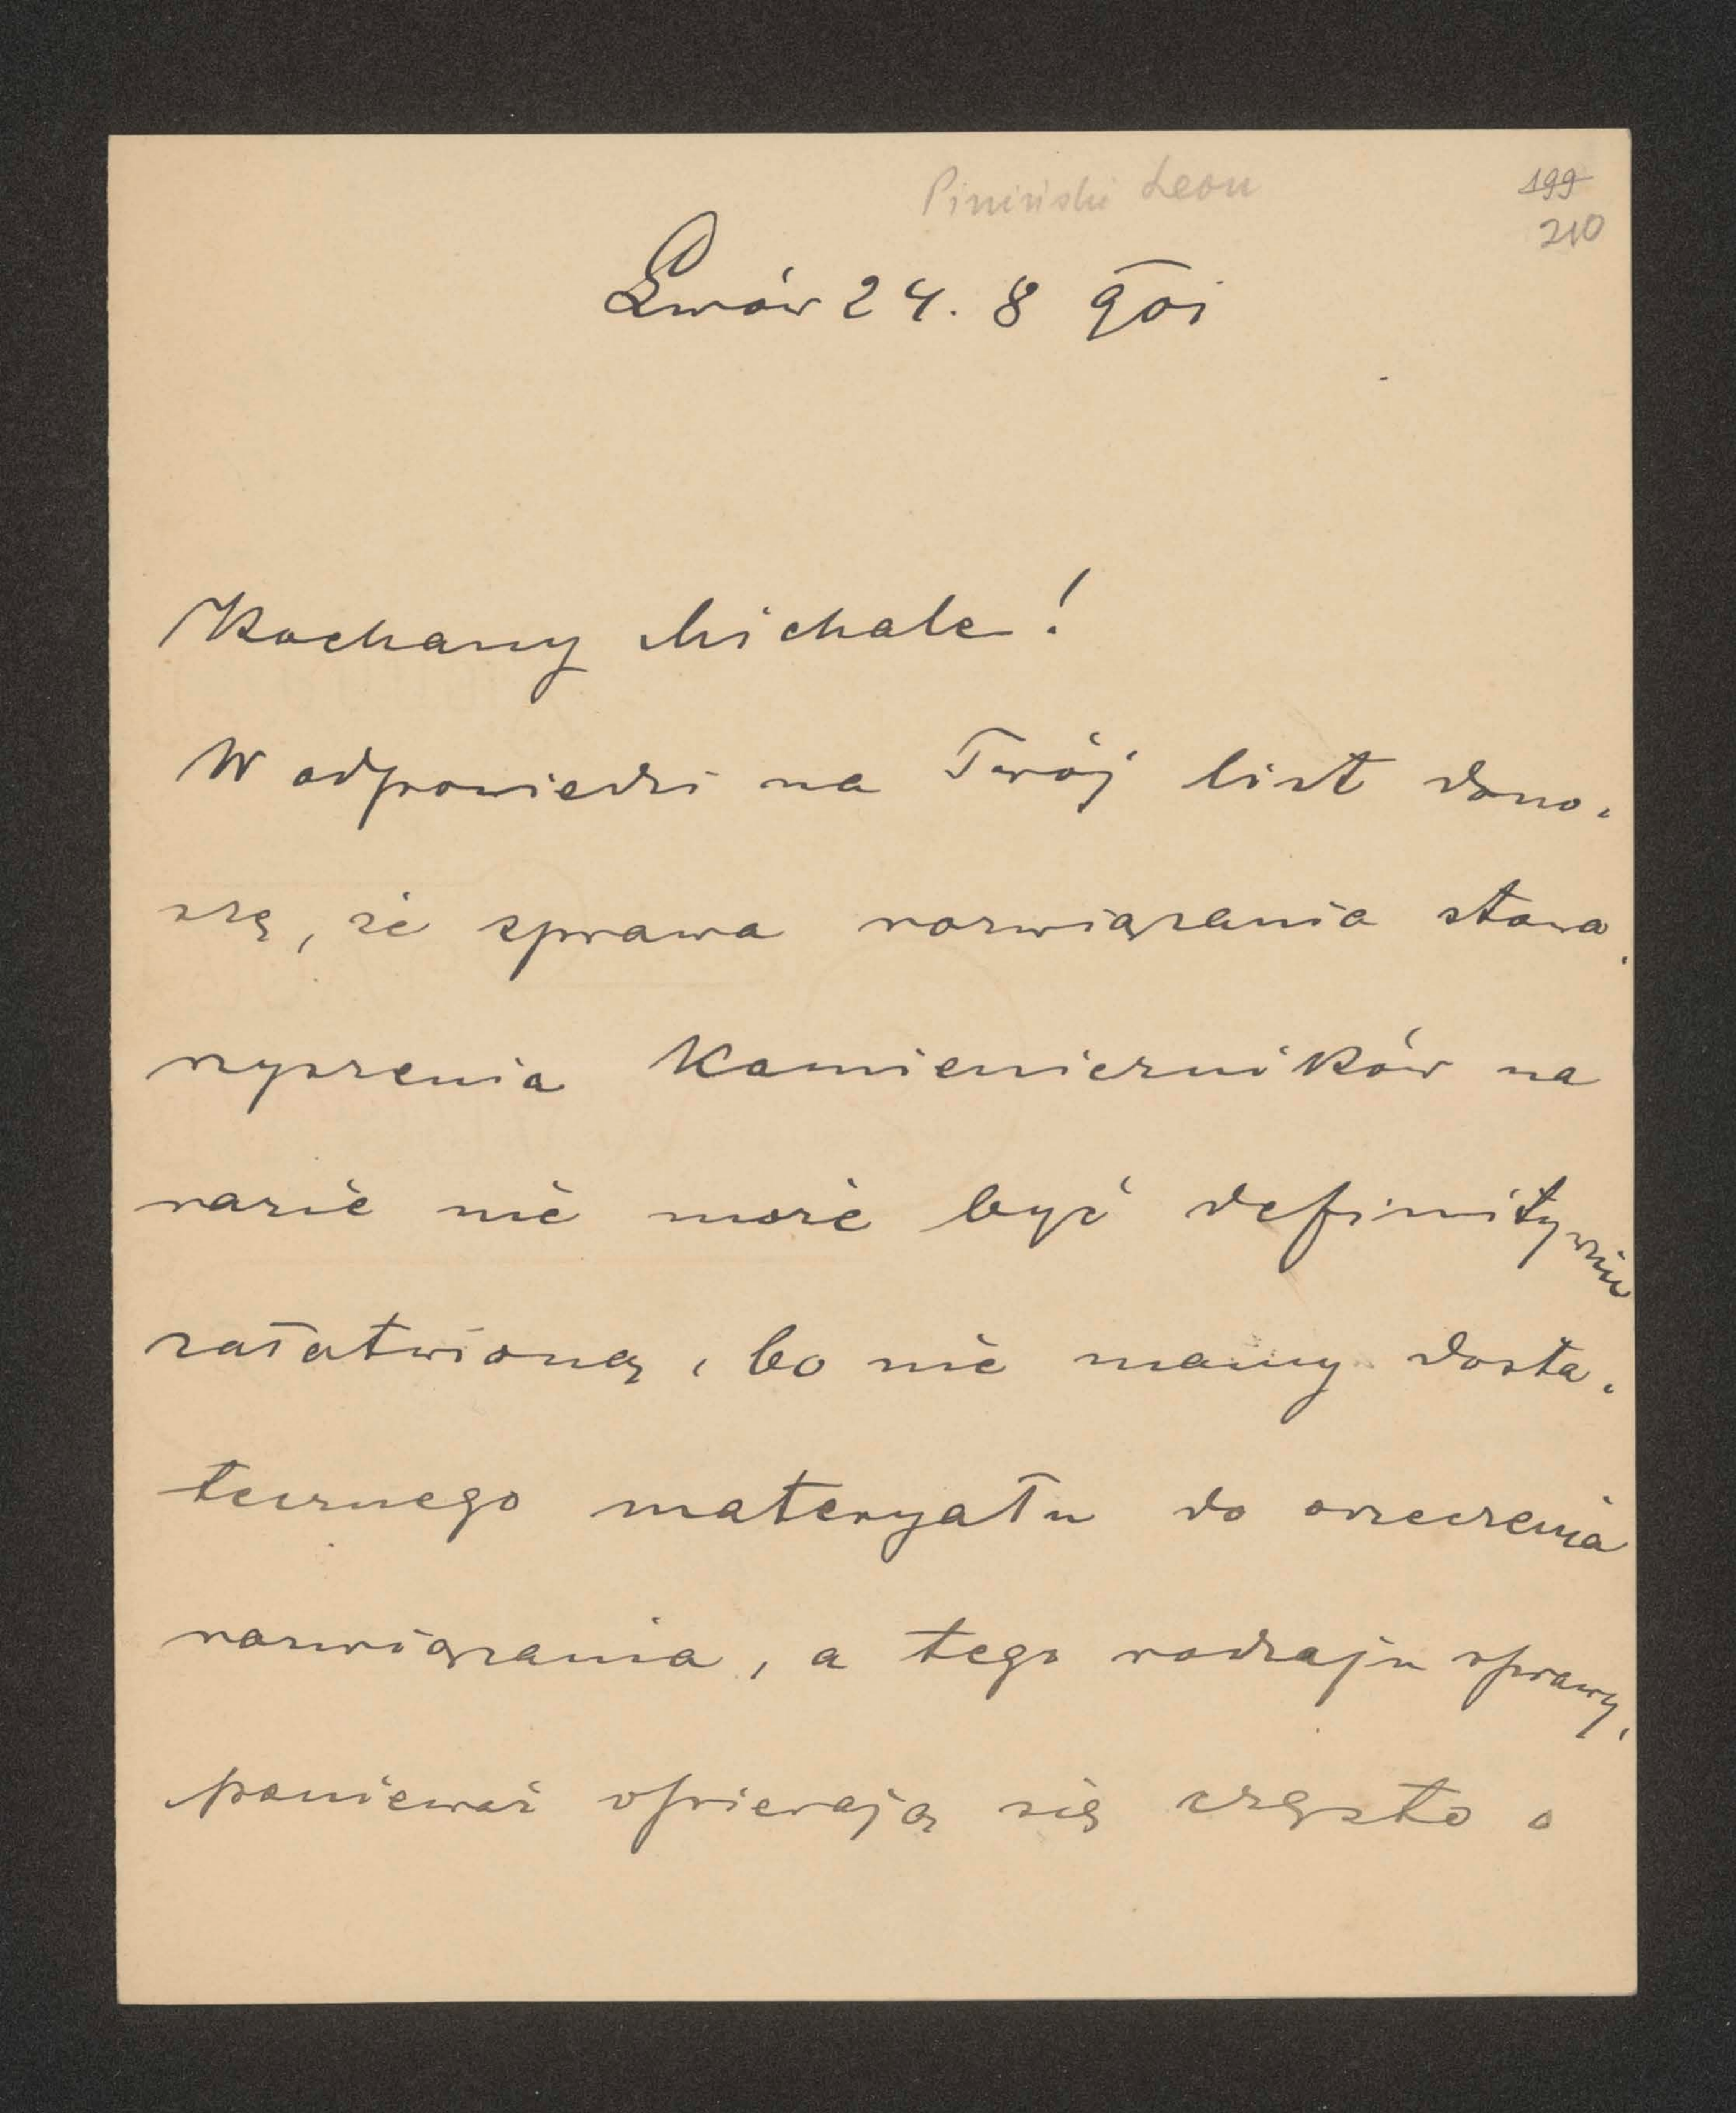 Piniński Leon
199
210
Lwów 24. 8 901
Kochany Michale!
W odpowiedzi na Twój list dono-
szę, że sprawa rozwiązania stowa-
rzyszenia Kamieniczników na
razie nie może być definitywnie
załatwioną, bo nie mamy dosta-
tecznego materyału do orzeczenia
rozwiązania, a tego rodzaju sprawy,
ponieważ opierają się często o